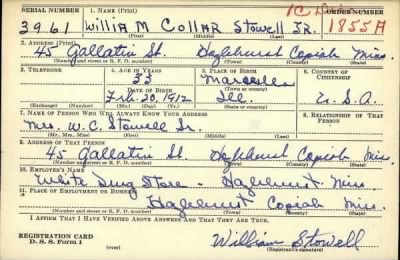 SERIAL NUMBER 1. NAME (Print) ORDER NUMBER
3961 William Collar Stowell Jr. 1855A
(First) (Middle) (Last)
2. ADDRESS (Print)
45 Gallatin St. Hazlehurst Copiah Miss.
(Number and street or R. F. D. number) (Town) (County) (State)
3. TELEPHONE 4. AGE IN YEARS 5. PLACE OF BIRTH 6. COUNTRY OF CITIZENSHIP
33 Marseilles
DATE OF BIRTH (Town or county)
Feb. 20, 1912 Ill. U.S.A.
(Exchange) (Number) (Mo.) (Day) (Yr.) (State or country)
7. NAME OF PERSON WHO WILL ALWAYS KNOW YOUR ADDRESS 8. RELATIONSHIP OF THAT PERSON
Mrs. W. C. Stowell Sr.
(Mr., Mrs., Miss) (First) (Middle) (Last)
9. ADDRESS OF THAT PERSON
45 Gallatin St. Hazlehurst Copiah Miss.
(Number and street or R. F. D. number) (Town) (County) (State)
10. EMPLOYER'S NAME
White Drug Store - Hazlehurst, Miss
11. PLACE OF EMPLOYMENT OR BUSINESS
Hazlehurst Copiah Miss.
(Number and street or R. F. D. number) (Town) (County) (State)
I AFFIRM THAT I HAVE VERIFIED ABOVE ANSWERS AND THAT THEY ARE TRUE.
REGISTRATION CARD
D. S. S. Form 1 William Stowell
(Registrant's signature)